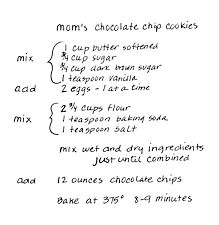 mom's chocolate chip cookies
1 cup butter softened
mix
3/4 cup sugar
3/4 cup dark brown sugar
1 teaspoon vanilla
add 2 eggs - 1 at a time
2 3/4 cups flour
mix 1 teaspoon baking soda
1 teaspoon salt
mix wet and dry ingredients
just until combined
add 12 ounces chocolate chips
Bake at 375° 8-9 minutes